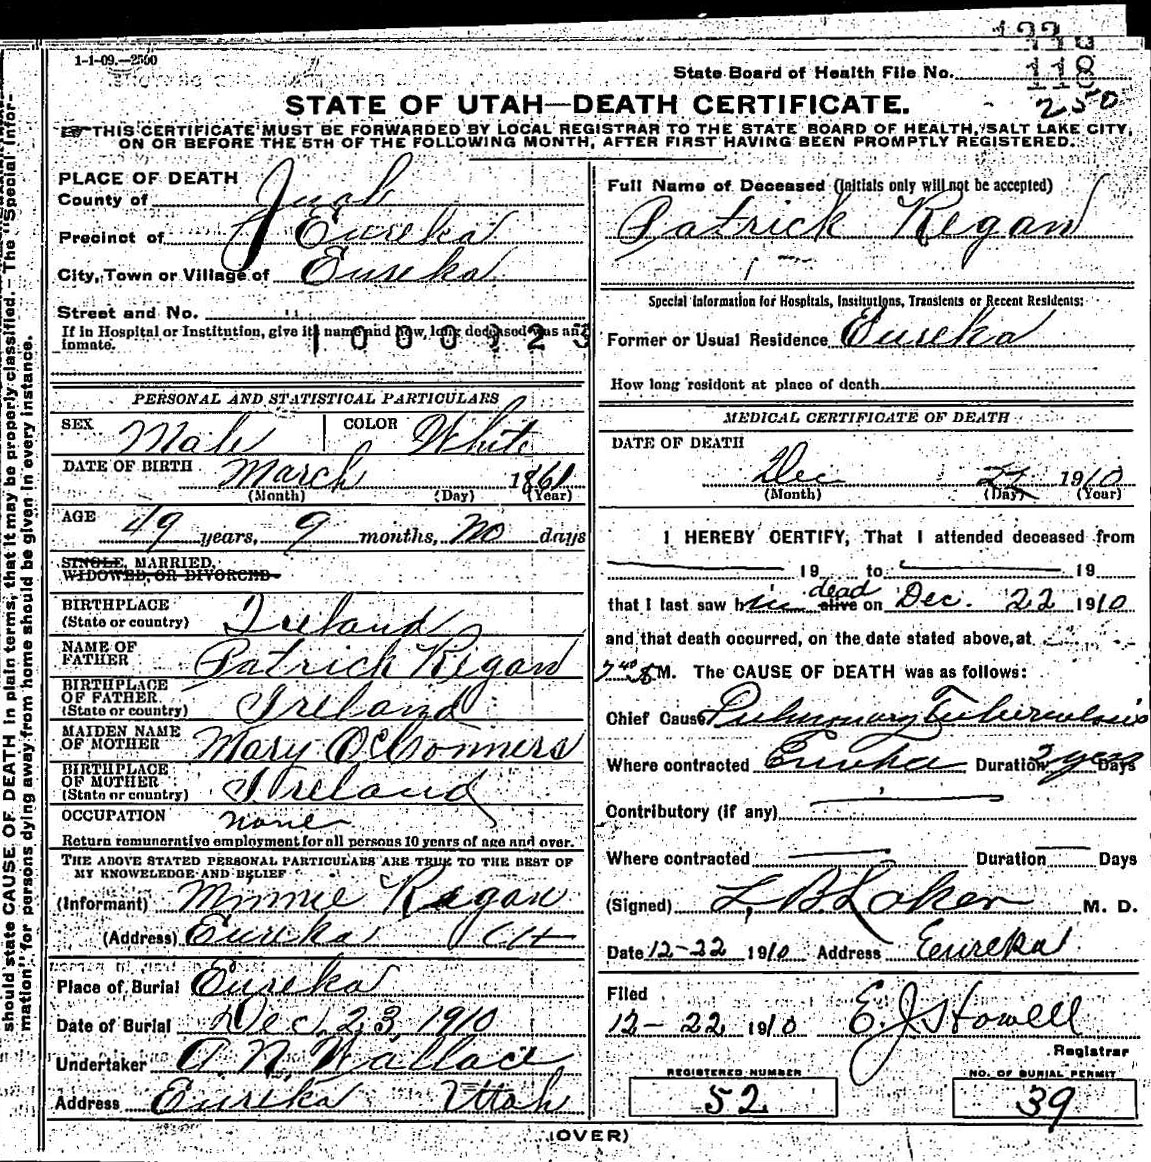 1-1-09.—2500
State Board of Health File No. 118
250
STATE OF UTAH—DEATH CERTIFICATE.
THIS CERTIFICATE MUST BE FORWARDED BY LOCAL REGISTRAR TO THE STATE BOARD OF HEALTH, SALT LAKE CITY,
ON OR BEFORE THE 5TH OF THE FOLLOWING MONTH, AFTER FIRST HAVING BEEN PROMPTLY REGISTERED.
should state CAUSE OF DEATH in plain terms, that it may be properly classified.—The "Special Infor-
mation" for persons dying away from home should be given in every instance.
PLACE OF DEATH
County of Juab
Precinct of Eureka
City, Town or Village of Eureka
Street and No.
If in Hospital or Institution, give its name and how long deceased was an
inmate.
PERSONAL AND STATISTICAL PARTICULARS
SEX Male COLOR White
DATE OF BIRTH March 1861
(Month) (Day) (Year)
AGE 49 years, 9 months, no days
SINGLE, MARRIED,
WIDOWED, OR DIVORCED
BIRTHPLACE
(State or country) Ireland
NAME OF
FATHER Patrick Regan
BIRTHPLACE
OF FATHER
(State or country) Ireland
MAIDEN NAME
OF MOTHER Mary O'Connors
BIRTHPLACE
OF MOTHER
(State or country) Ireland
OCCUPATION none
Return remunerative employment for all persons 10 years of age and over.
THE ABOVE STATED PERSONAL PARTICULARS ARE TRUE TO THE BEST OF
MY KNOWLEDGE AND BELIEF
(Informant) Minnie Regan
(Address) Eureka Ut
Place of Burial Eureka
Date of Burial Dec. 23, 1910
Undertaker A. N. Wallace
Address Eureka Utah
Full Name of Deceased (Initials only will not be accepted)
Patrick Regan
Special Information for Hospitals, Institutions, Transients or Recent Residents:
Former or Usual Residence Eureka
How long resident at place of death
MEDICAL CERTIFICATE OF DEATH
DATE OF DEATH
Dec 1910
(Month) (Day) (Year)
I HEREBY CERTIFY, That I attended deceased from
19 to 19
that I last saw him alive dead on Dec. 22 1910
and that death occurred, on the date stated above, at
M. The CAUSE OF DEATH was as follows:
Chief Cause Pulmonary Tuberculosis
Where contracted Eureka Duration 2 years Days
Contributory (if any)
Where contracted Duration Days
(Signed) L. B. Laker M. D.
Date 12-22 1910 Address Eureka
Filed
12-22 1910 E. J. Howell
Registrar
REGISTERED NUMBER
52
NO. OF BURIAL PERMIT
39
(OVER)